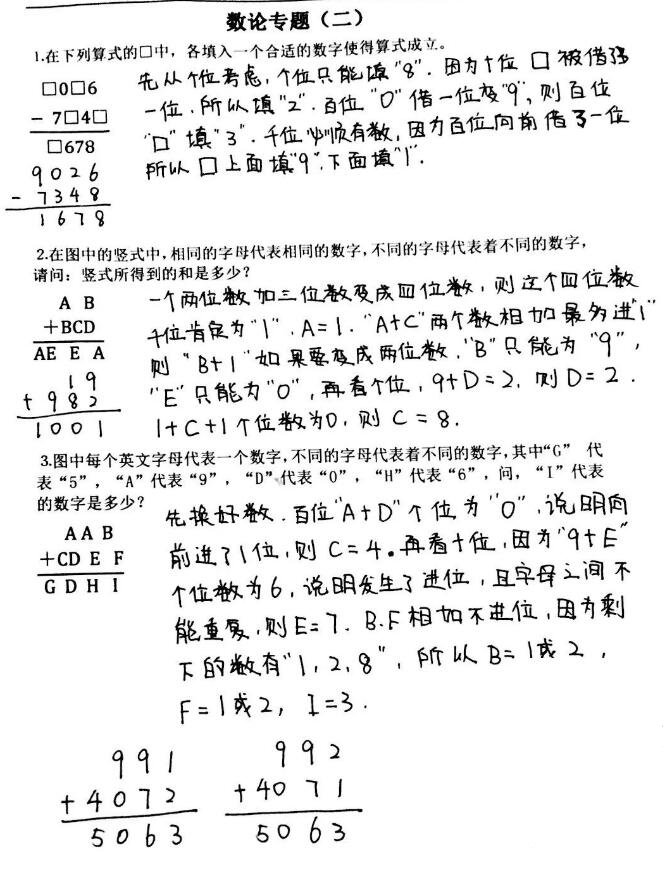 数论专题（二）
1.在下列算式的□中，各填入一个合适的数字使得算式成立。
□0□6
- 7□4□
□678
9026
- 7348
1678
先从个位考虑，个位只能填"8"．因为十位 □ 被借了
一位．所以填"2"．百位"0"借一位变"9"，则百位
"□"填"3"．千位必须有数，因为百位向前借了一位
所以 □ 上面填"9"．下面填"1"．
2.在图中的竖式中，相同的字母代表相同的数字，不同的字母代表着不同的数字，
请问：竖式所得到的和是多少？
A B
+BCD
AE E A
19
+ 982
1001
一个两位数加三位数变成四位数，则这个四位数
千位肯定为"1"．A=1．"A+C"两个数相加最多进"1"
则"B+1"如果要变成两位数，"B"只能为"9"，
"E"只能为"0"，再看个位，9+D=2，则D=2．
1+C+1个位数为0，则 C=8．
3.图中每个英文字母代表一个数字，不同的字母代表着不同的数字，其中“G” 代
表“5”，“A”代表“9”，“D”代表“0”，“H”代表“6”，问，“I”代表
的数字是多少？
AA B
+CD E F
G D H I
先换好数．百位"A+D"个位为"0"，说明向
前进了1位，则 C=4。再看十位，因为"9+E"
个位数为6，说明发生了进位，且字母之间不
能重复，则E=7．B．F相加不进位，因为剩
下的数有"1，2，8"，所以B=1或2，
F=1或2，I=3．
991
+4072
5063
992
+4071
5063